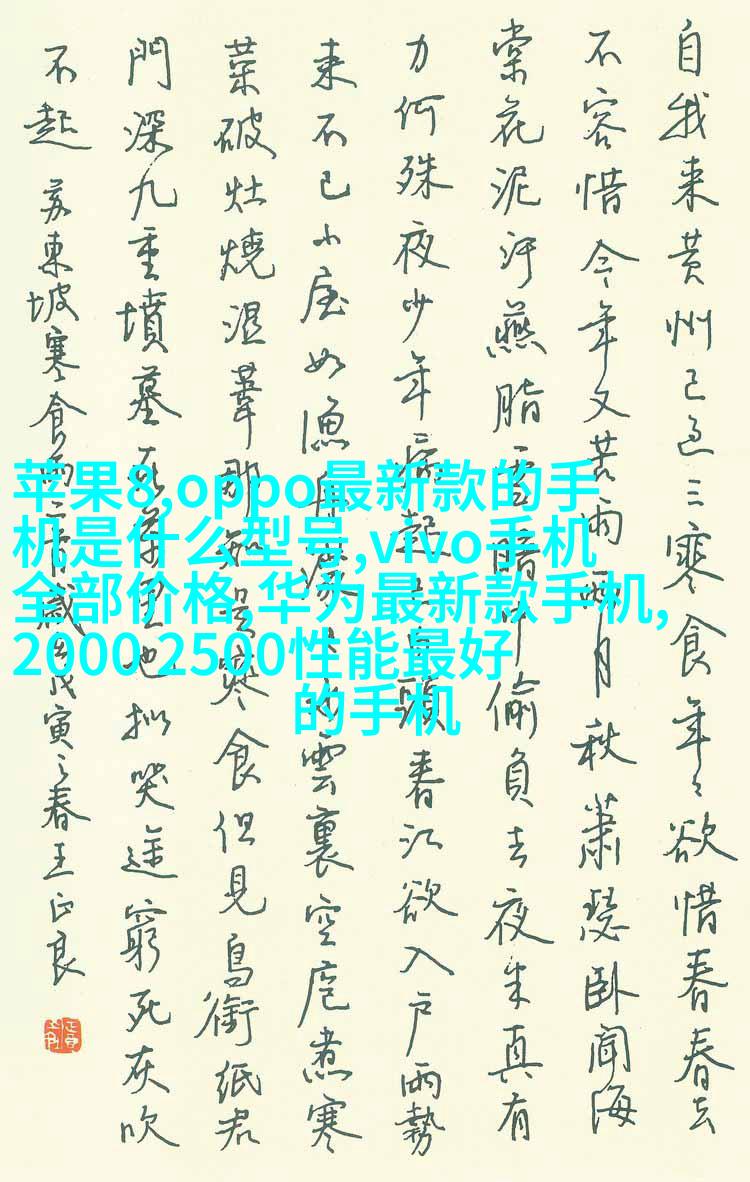 自我来黄州已过三寒食年々欲惜春春去
不容惜今年又苦雨兩月秋蕭瑟卧闻海
棠花泥汙燕脂雪暗中偷負去夜半真有
力何殊夜少年病起頭春江欲入户雨勢
来不已小屋如渔舟水雲裏空庖煮寒
菜破灶燒湿葦那知是寒食但見烏銜紙君
門深九重墳墓在萬里也拟哭途窮死灰吹
不起 苏東坡寒食雨二首歲戊寅之春王正良
苹果8,oppo最新款的手
机是什么型号,vivo手机
全部价格,华为最新款手机,
2000 2500性能最好
的手机